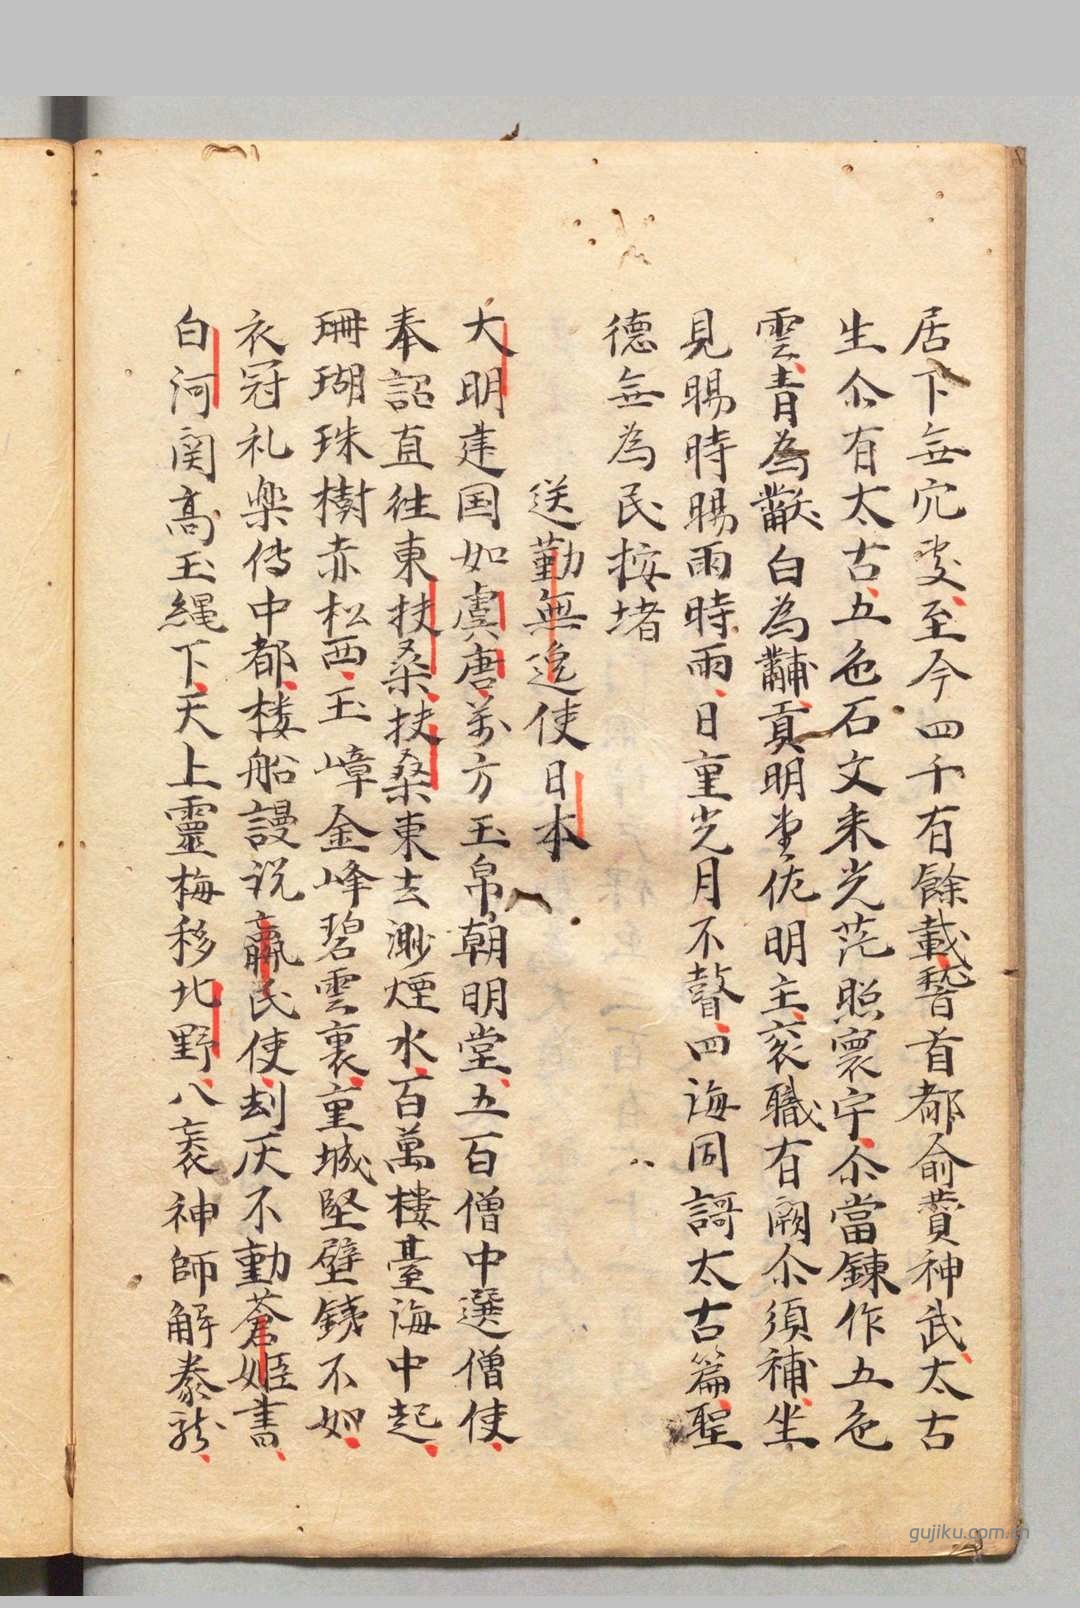 居下無穴處至今四千有餘載稽首都俞贊神武太古
生尒有太古五色石文来光茫照寰宇尒當鍊作五色
雲青為黻白為黼貢明堂佐明主衮職有闕尒須補坐
見賜時賜雨時雨日重光月不瞽四海同謌太古篇聖
德無為民按堵
送勤無逸使日本
大明建国如虞唐万方玉帛朝明堂五百僧中選僧使
奉詔直徃東扶桑扶桑東去渺煙水百萬樓臺海中起
珊瑚珠樹赤松西玉嶂金峰碧雲裏重城堅壁銕不如
衣冠礼楽传中都楼船謾说嬴氏使刦灰不動蒼姬書
白河関高玉縄下天上靈梅移北野八袠神師解豢龙
gujiku.com.cn